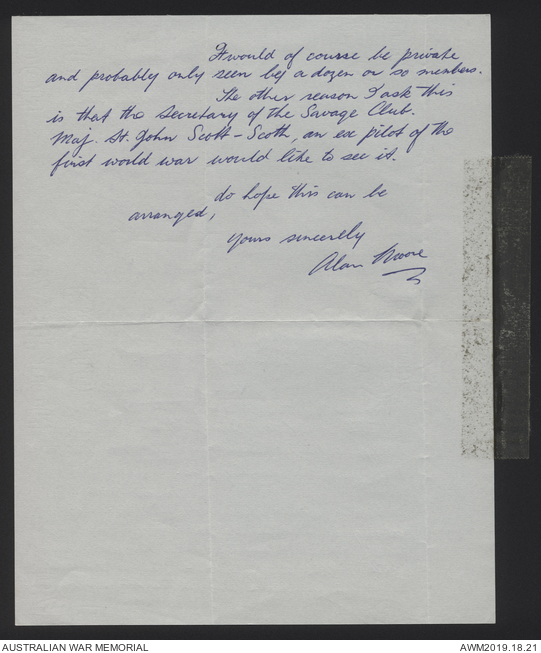 It would of course be private
and probably only seen by a dozen or so members.
The other reason I ask this
is that the secretary of the Savage Club.
Maj. St. John Scott-Scott, an ex pilot of the
first world war would like to see it.
do hope this can be
arranged,
yours sincerely
Alan Moore
AUSTRALIAN WAR MEMORIAL
AWM2019.18.21